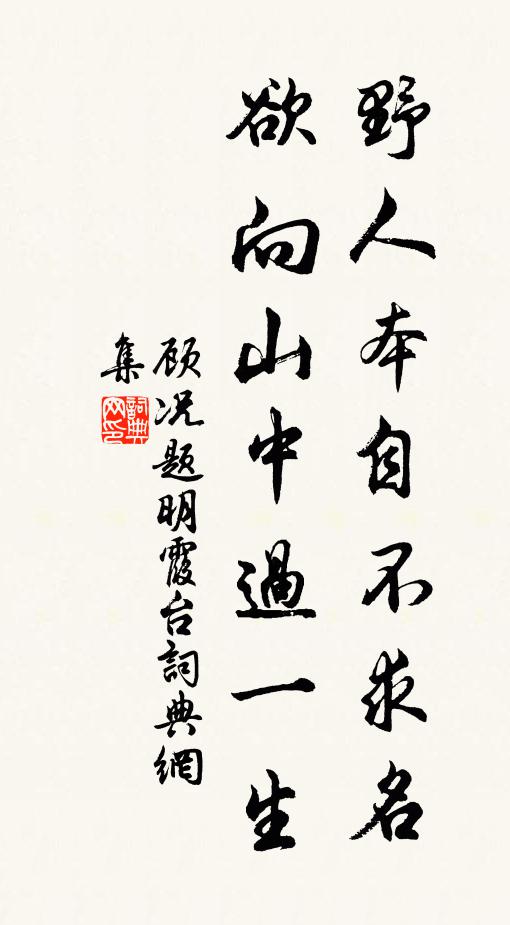 野人本自不求名
欲向山中過一生
顾况题明霞台詞典網
集
詞典网印